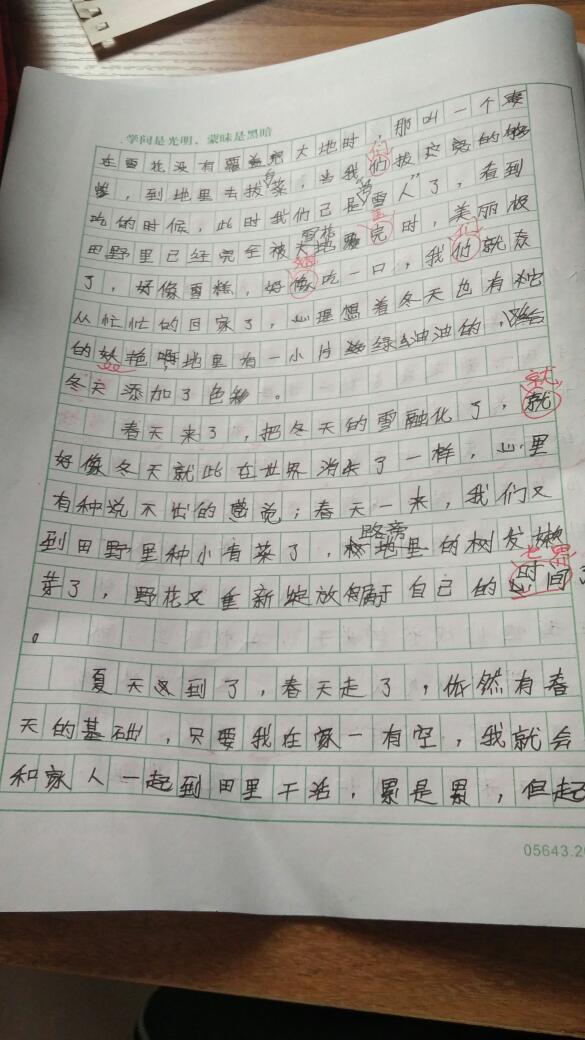 学问是光明、蒙昧是黑暗
在雪花没有覆盖完大地时，那叫一个爽
，到地里去拔菜，当我们拔完的
吃的时候，此时我们已是"雪人"了，看到
雪花
田野里已经完全被大地 完时，美丽极
了，好像雪糕，好像吃一口，我们就
从忙忙的回家了，心理想着冬天也有
的 艳 地里有一小片 绿油油的，给
冬天添加了色彩。
就
春天来了，把冬天的雪融化了，就
好像冬天就此在世界消失了一样，心里
有种说不出的感觉；春天一来，我们又
路旁
到田野里种小青菜了， 地里的树发嫩
芽了，野花又重新绽放 于自己的时间了
。
夏天又到了，春天走了，依然有春
天的基础，只要我在家一有空，我就会
和家人一起到田里干活，累是累，但起
05643.20